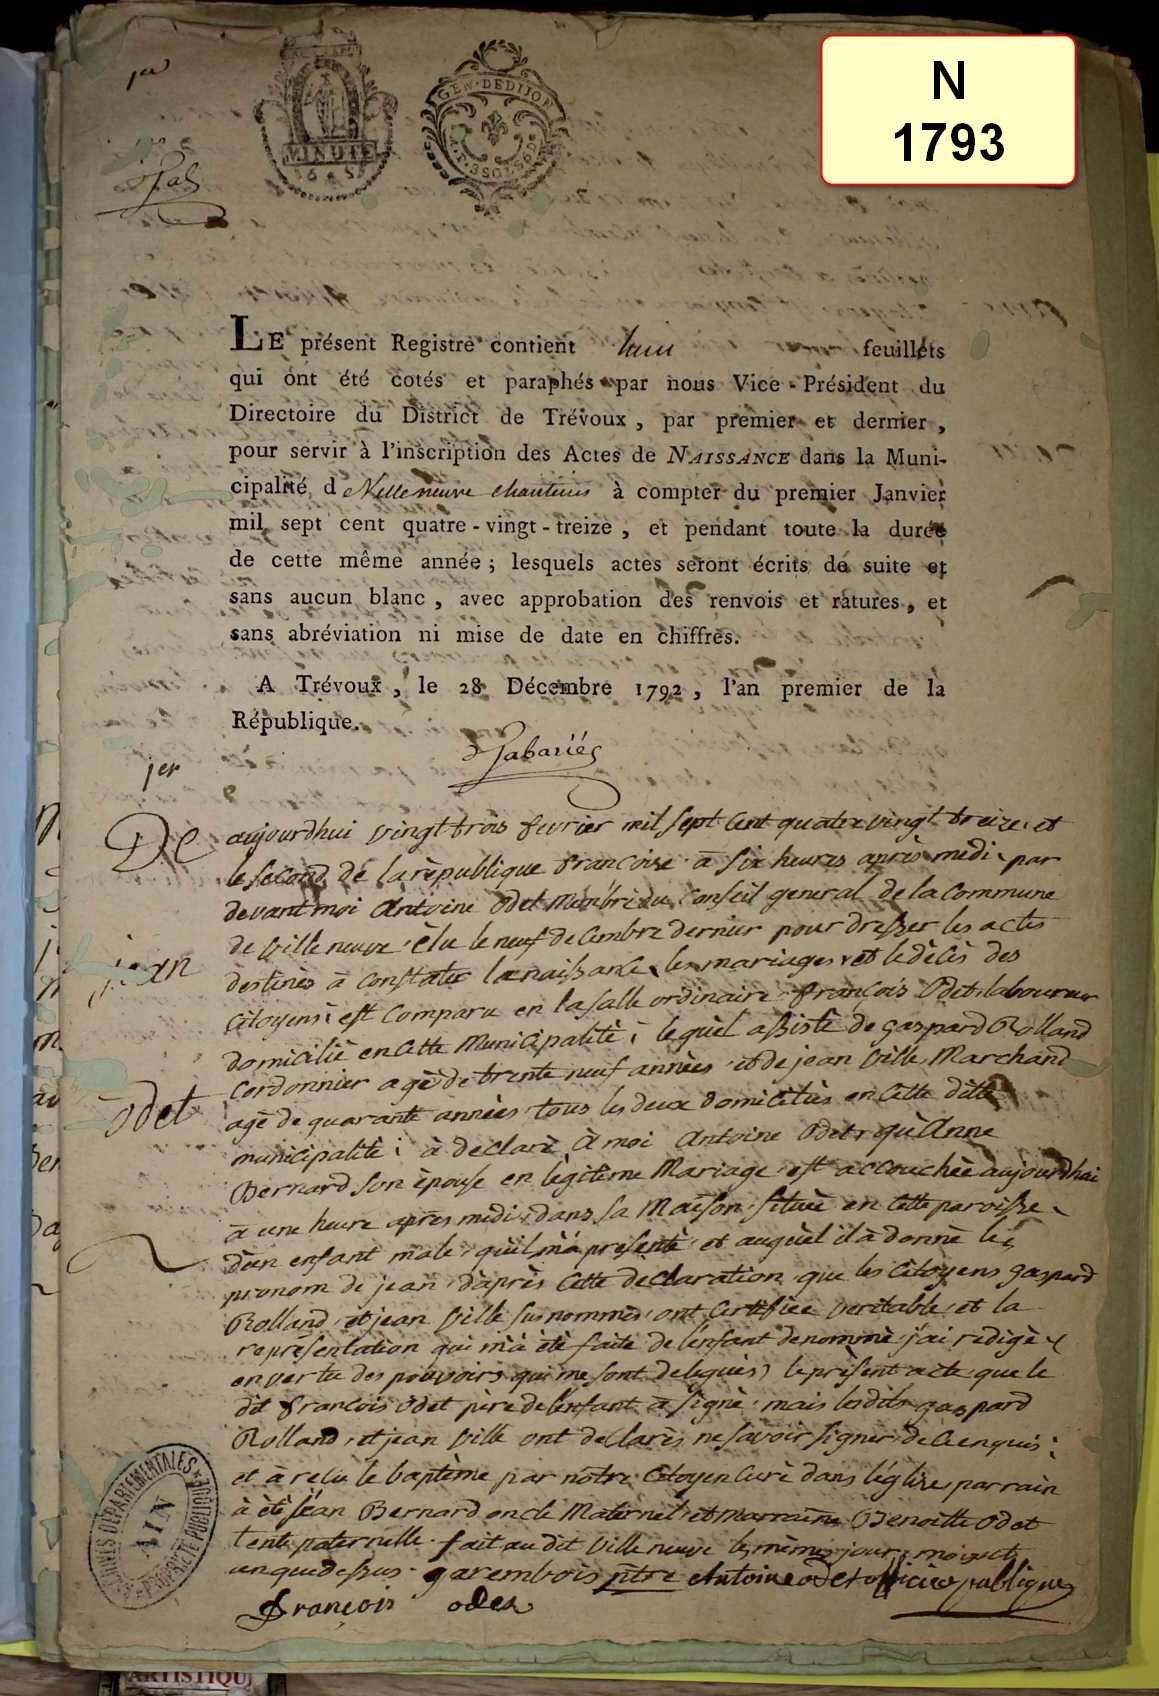 N
1793
1er
MINUTE
GEN DEDIJON
LE présent Registre contient huit feuillets
qui ont été cotés et paraphés par nous Vice-Président du
Directoire du District de Trévoux, par premier et dernier,
pour servir à l'inscription des Actes de NAISSANCE dans la Muni-
cipalité d Villeneuve chanteins à compter du premier Janvier
mil sept cent quatre-vingt-treize, et pendant toute la durée
de cette même année; lesquels actes seront écrits de suite et
sans aucun blanc, avec approbation des renvois et ratures, et
sans abréviation ni mise de date en chiffres.
A Trévoux, le 28 Décembre 1792, l'an premier de la
République.
Jabariés
1er
De
jean
odet
aujourdhui vingt trois fevrier mil sept cent quatre vingt treize et
le second de la rèpublique francoise à six heures après medi par
devant moi Antoine Odet Membre du Conseil general de la Commune
de ville neuve èlu le neuf decembre dernier pour dresser les actes
destinès à constater la naissance les mariages et le dècès des
citoyens est comparu en la salle ordinaire francois Odet laboureur
domiciliè en cette Municipalitè, lequèl assistè de gaspard Rolland
Cordonnier agè de trente neuf annèes et de jean Ville Marchand
agè de quarante annèes tous les deux domicilièes en cette ditte
municipalitè; à declarè à moi Antoine Odet qu'Anne
Bernard son èpouse en legitime Mariage est accouchèe aujourdhui
à une heure après midi dans sa Maison situèe en cette paroisse
d'un enfant male qu'il m'à presentè et auquèl il à donnè les
prenom de jean d'après cette declaration que les citoyens gaspard
Rolland et jean Ville susnommès ont certifiee veritable et la
représentation qui m'à ètè faite de l'enfant denommè j'ai redigè
en vertu des pouvoirs qui me sont deleguès le prèsent acte que le
dit francois Odet père de l'enfant à signè mais lesdits gaspard
Rolland et jean Ville ont declarès ne savoir signer de ce enquis
et à reçu le baptème par nôtre Citoyen Curè dans l'èglise parrain
à ètè jean Bernard oncle Maternel et marraine Benoitte Odet
tente paternelle fait au dit Ville neuve les mèmes jour mois et
an que dessus garembois ptre Antoine odet officier publique
françois odet
ARCHIVES DÉPARTEMENTALES
AIN
PROPRIÉTÉ PUBLIQUE
ARTISTIQU